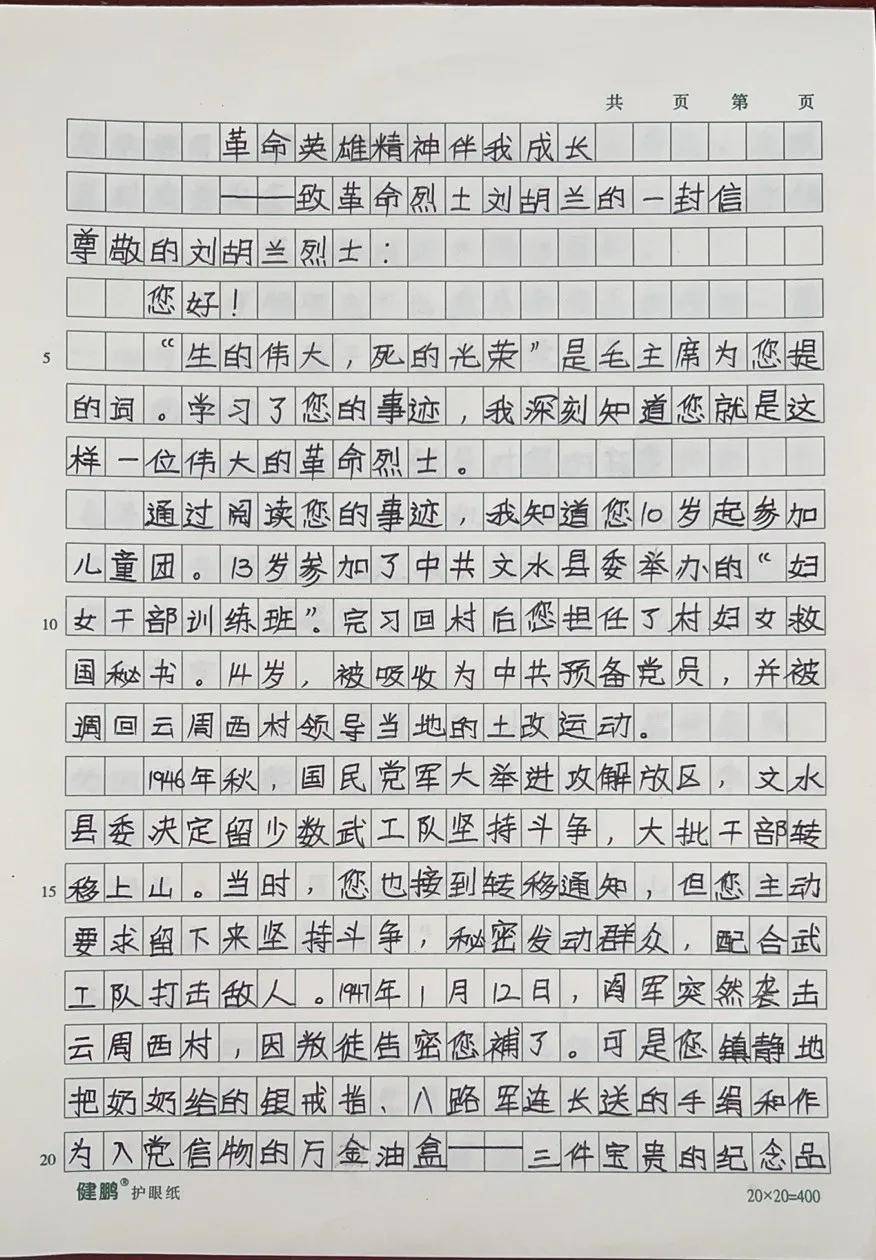 共 页 第 页
革命英雄精神伴我成长
——致革命烈士刘胡兰的一封信
尊敬的刘胡兰烈士：
您好！
“生的伟大，死的光荣”是毛主席为您提
5
的词。学习了您的事迹，我深刻知道您就是这
样一位伟大的革命烈士。
通过阅读您的事迹，我知道您10岁起参加
儿童团。13岁参加了中共文水县委举办的“妇
10
女干部训练班”。完习回村后您担任了村妇女救
国秘书。14岁，被吸收为中共预备党员，并被
调回云周西村领导当地的土改运动。
1946年秋，国民党军大举进攻解放区，文水
县委决定留少数武工队坚持斗争，大批干部转
15
移上山。当时，您也接到转移通知，但您主动
要求留下来坚持斗争，秘密发动群众，配合武
工队打击敌人。1947年1月12日，阎军突然袭击
云周西村，因叛徒告密您補了。可是您镇静地
把奶奶给的银戒指、八路军连长送的手绢和作
20
为入党信物的万金油盒——三件宝贵的纪念品
健鹏®护眼纸
20×20=400